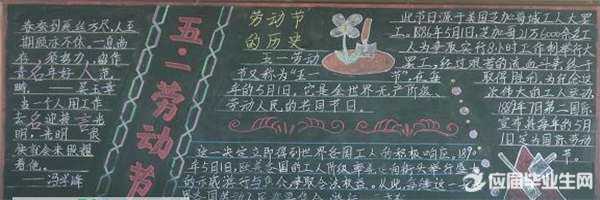 春蚕到死丝方尽,人至
期颐亦不休。一息尚
存,须努力,留作
青年好范
畴。——吴玉章
当一个人用工作
去迎接光
明,光明
快就会来照耀
着他。
——冯学峰
五一劳动节
劳动节
的历史
五一劳动
节又称为"五一
节",在每
年的5月1日,它是全世界无产阶级、
劳动人民的共同节日。
此节日源于美国芝加哥城工人大罢
工,1886年5月1日,芝加哥21万6000余名工
人为争取实行8小时工作制举行大
罢工,经过艰苦的流血斗争,终于
取得胜利。为纪念这
次伟大的工人运动,
1889年7月第二国际
宣布将每年的5月
1日定为国际劳动
节。
这一决定立即得到世界各国工人的积极响应。1890
年5月1日,欧美各国的工人阶级率先走向街头,举行盛大
的示威游行与集会,争取合法权益。从此,每逢这一天
应届毕业生网